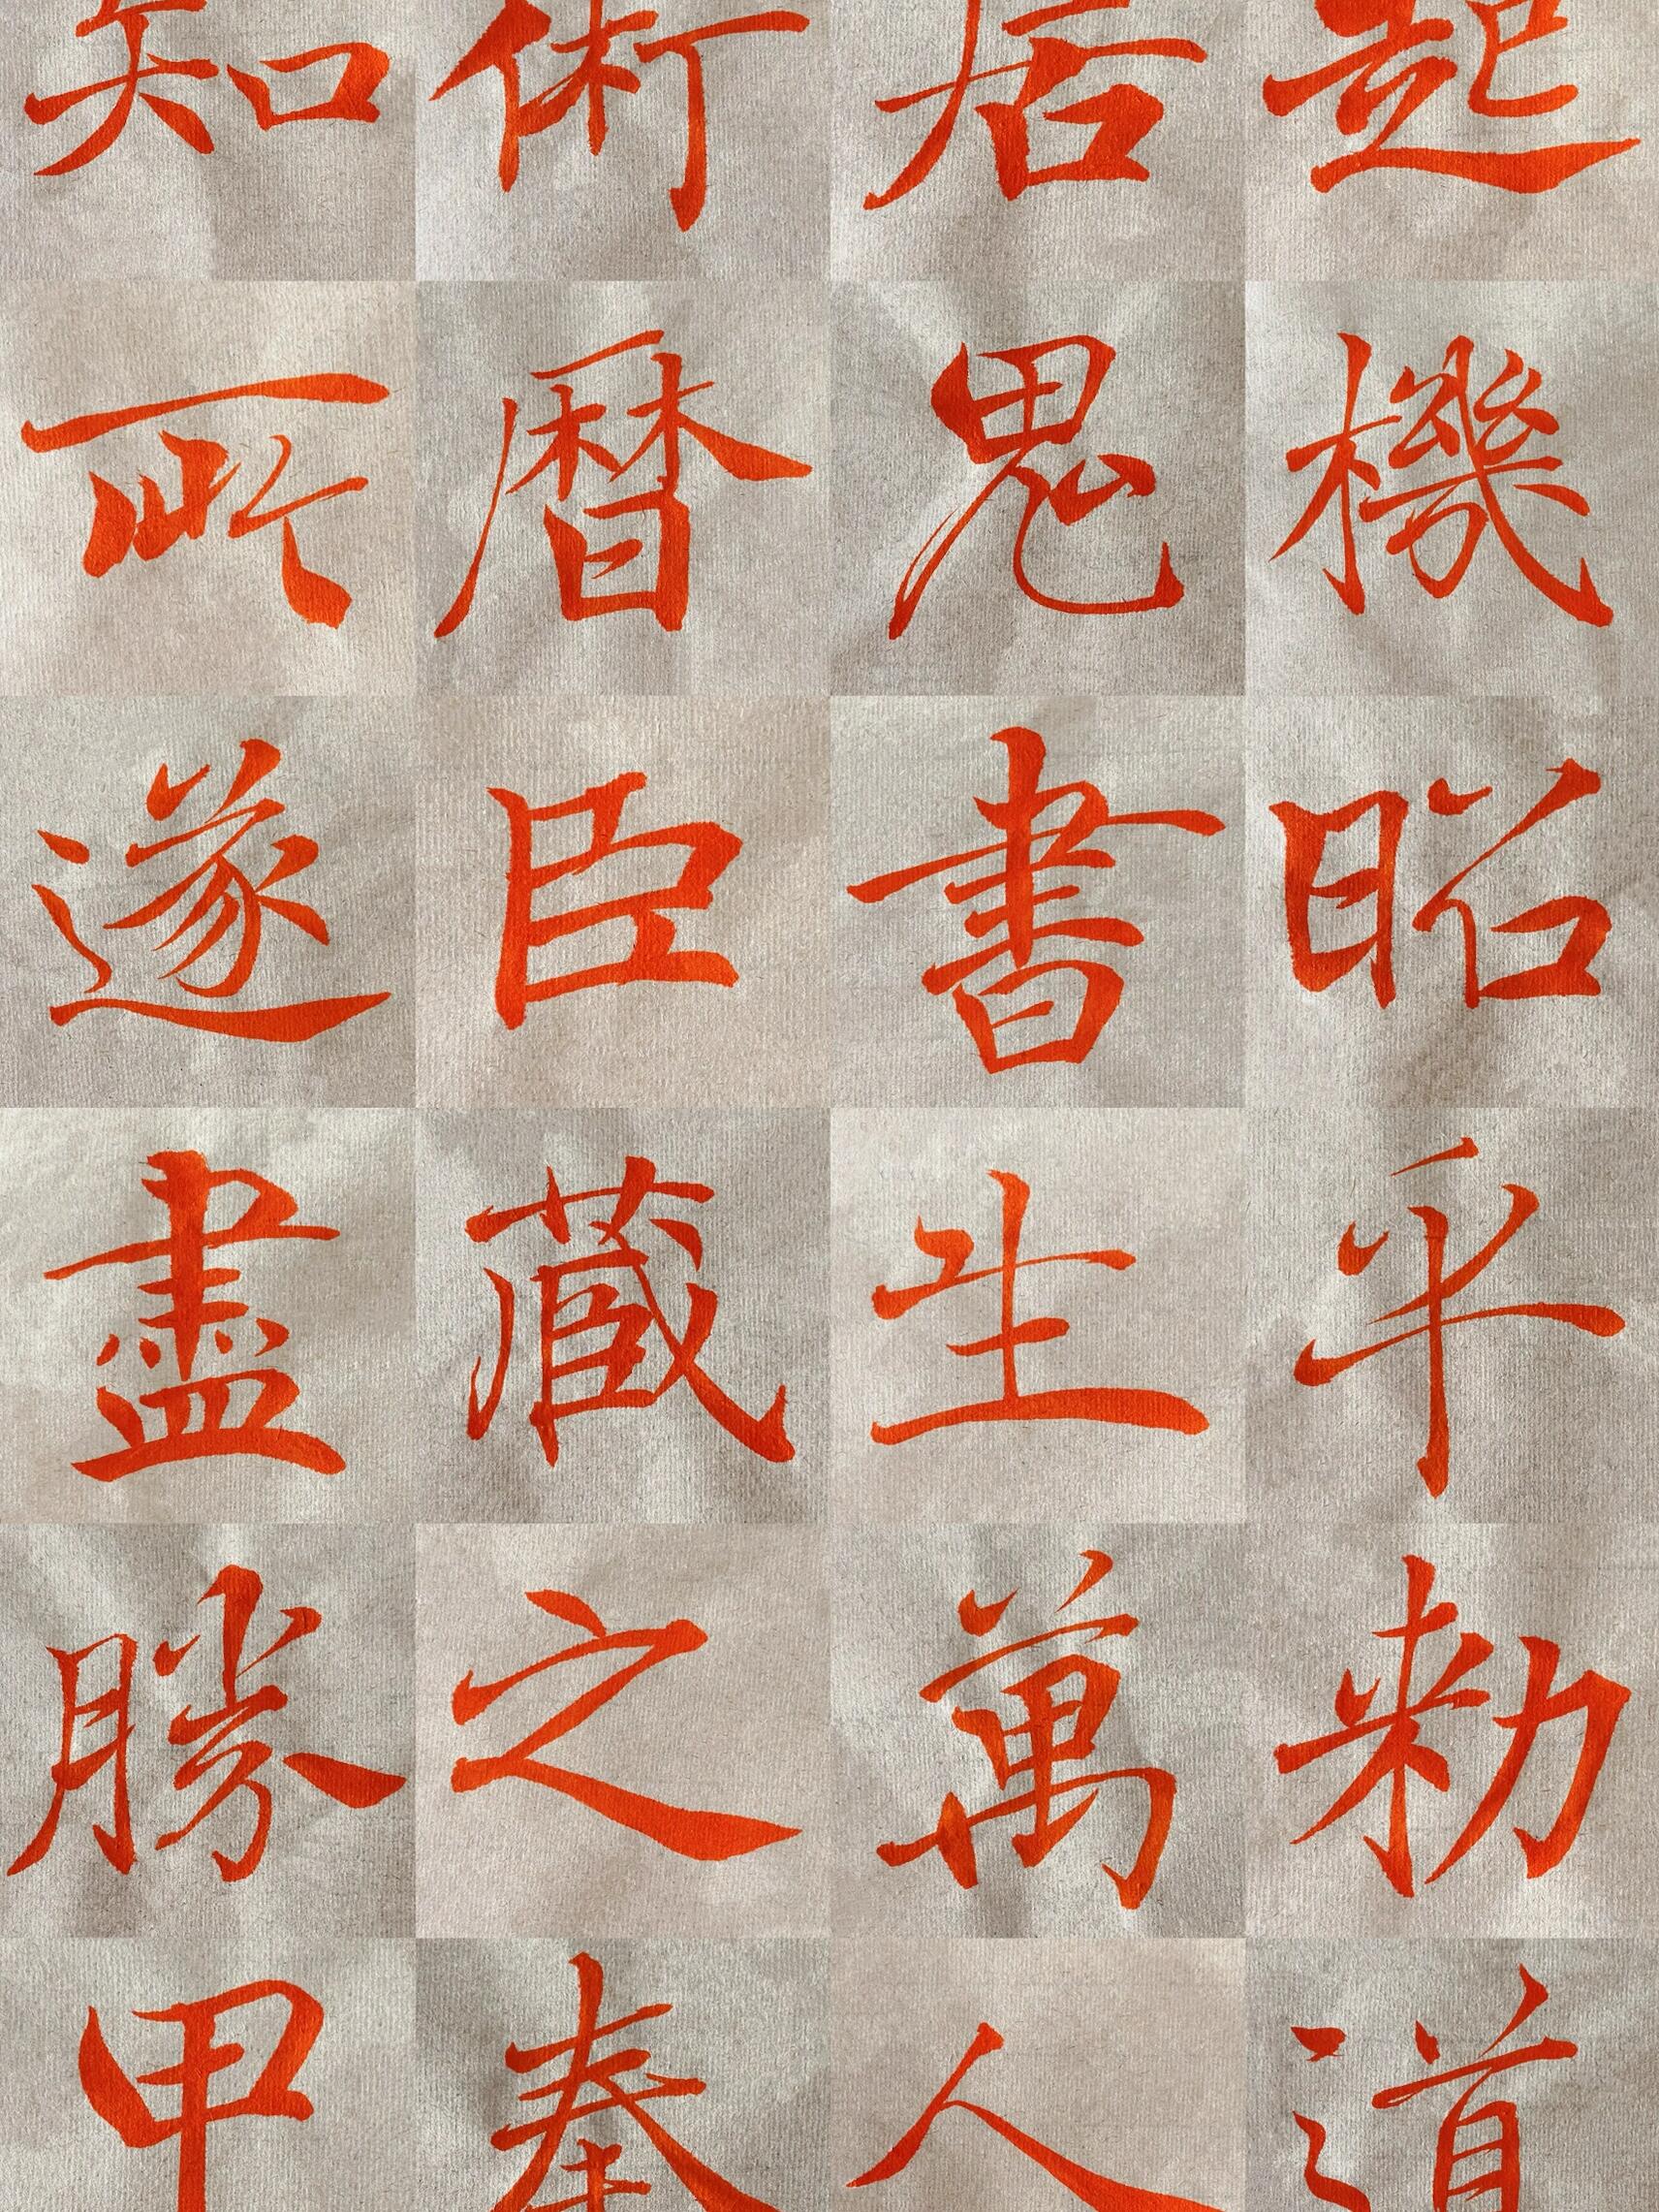 起機昭乎勅道
居鬼書生萬人
術曆臣藏之奉
知所遂盡勝甲